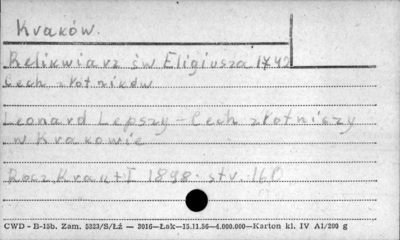 Kraków.
Relikwiarz św Eligiusza 1742
Cech złotników
Leonard Lepszy - Cech złotniczy
w Krakowie
Rocz. Krak. t I 1898. str.
CWD - B-15b. Zam. 5323/S/Łż — 3016—Łak—15.11.56—4.000.000—Karton kl. IV A1/200 g